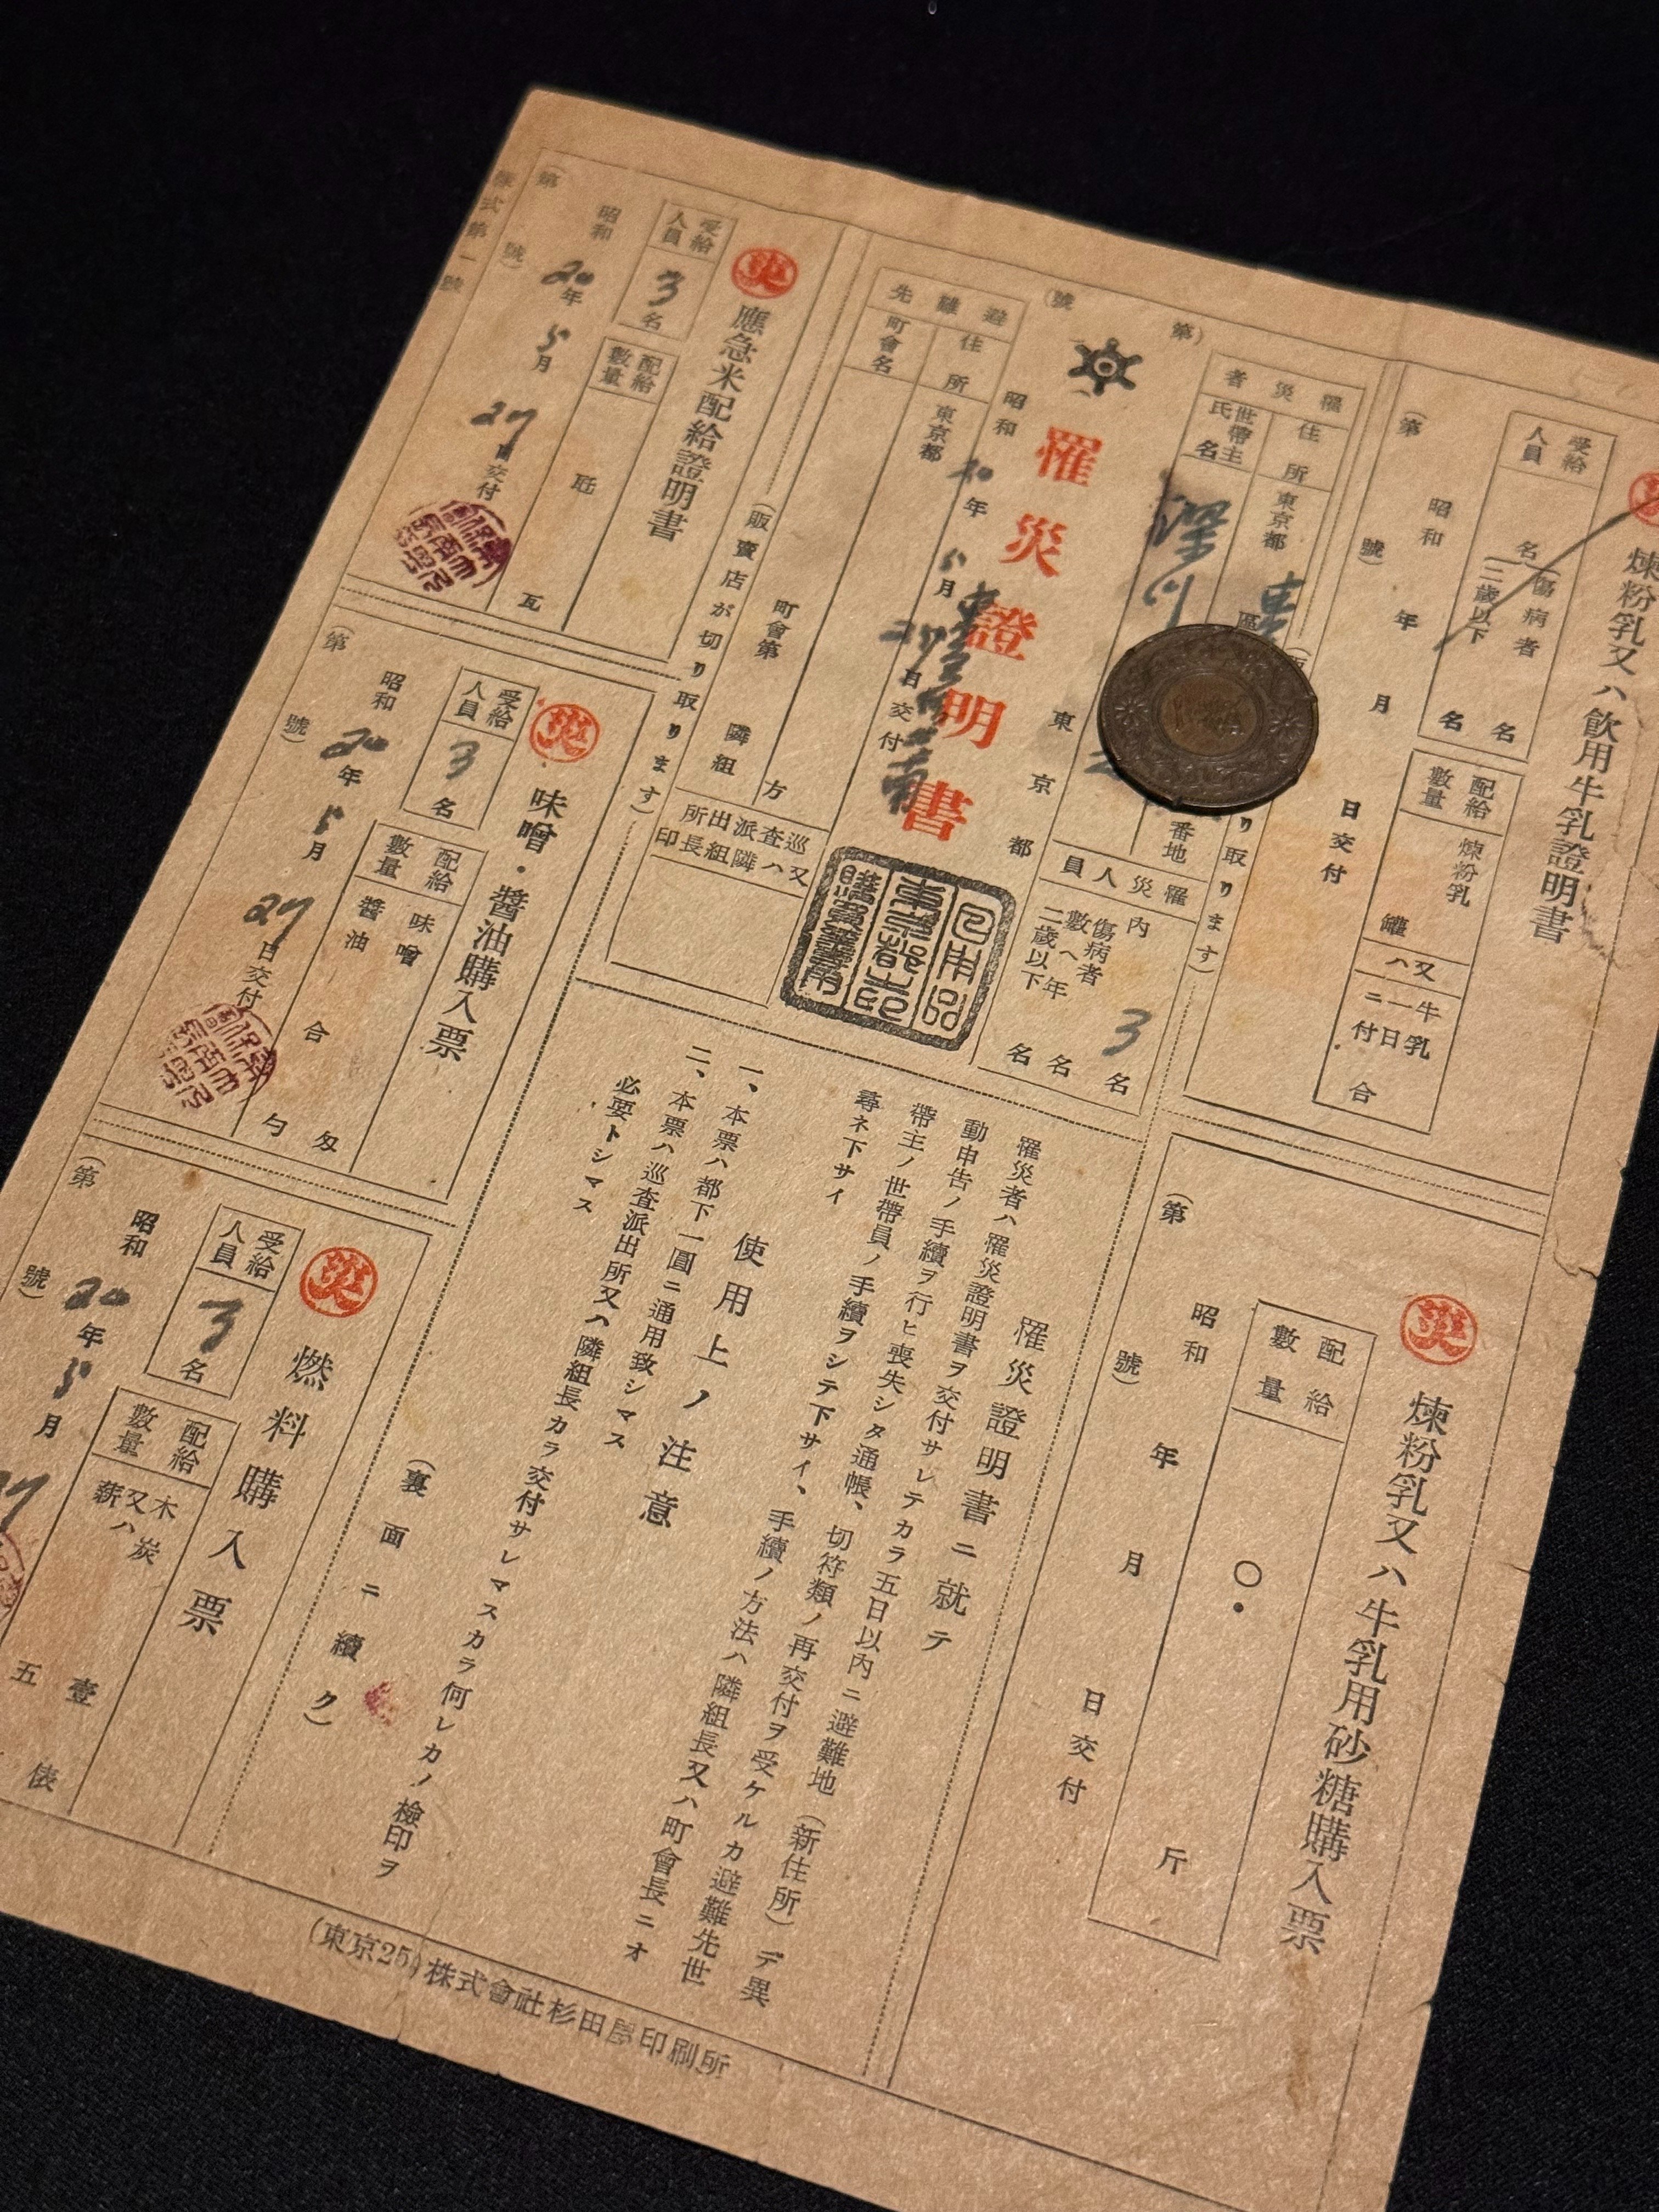 煉粉乳又ハ飲用牛乳證明書
受給人員
名
傷病者
名
二歳以下
名
配給數量
煉粉乳
罐
又ハ
牛乳一日ニ付
合
昭和
年
月
日交付
(第
號)
罹災者
住所
東京都
區
番地
世帶主氏名
罹災人員
3名
內
傷病者
名
數ヘ年二歳以下
名
第
號
東京都
罹災證明書
昭和20年5月27日交付
避難先
住所
東京都
町會名
町會第
隣組
方
巡査派出所又ハ隣組長印
(販賣店が切り取ります)
災
應急米配給證明書
受給人員
3名
配給數量
瓩
瓦
昭和20年5月27日交付
(第
號)
株式第一號
災
味噌・醬油購入票
受給人員
3名
配給數量
味噌
匁
醬油
合
勺
昭和20年5月27日交付
(第
號)
災
燃料購入票
受給人員
3名
配給數量
木炭
又ハ
薪
壹
五
俵
昭和20年5月
(第
號)
災
煉粉乳又ハ牛乳用砂糖購入票
配給數量
〇.
斤
昭和
年
月
日交付
(第
號)
罹災證明書ニ就テ
罹災者ハ罹災證明書ヲ交付サレテカラ五日以內ニ避難地(新住所)デ異
動申告ノ手續ヲ行ヒ喪失シタ通帳、切符類ノ再交付ヲ受ケルカ避難先世
帶主ノ世帶員ノ手續ヲシテ下サイ、手續ノ方法ハ隣組長又ハ町會長ニオ
尋ネ下サイ
使用上ノ注意
一、本票ハ都下一圓ニ通用致シマス
二、本票ハ巡査派出所又ハ隣組長カラ交付サレマスカラ何レカノ檢印ヲ
必要トシマス
(裏面ニ續ク)
(東京25)株式會社杉田屋印刷所